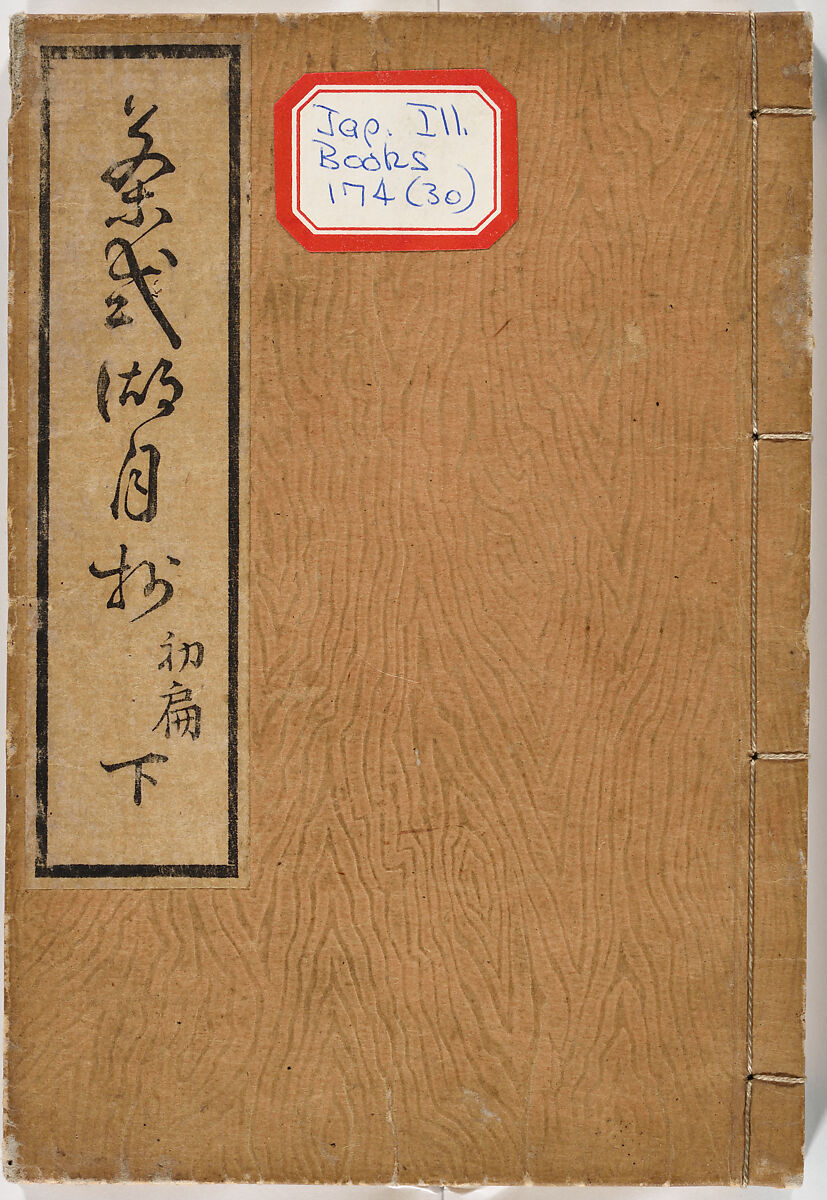 茶式湖月抄
初扁
下
Jap. Ill.
Books
174 (30)